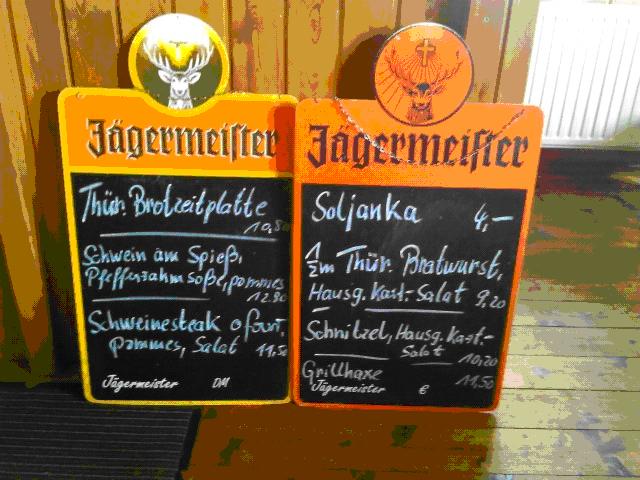 Jägermeister
Thür. Brotzeitplatte
10,80
Schwein am Spieß,
Pfefferrahmsoße, pommes
12.80
Schweinesteak
pommes, Salat 11,50
Jägermeister DM
Jägermeister
Soljanka 4,–
1/2m Thür. Bratwurst,
Hausg. Kart.-Salat 9,20
Schnitzel, Hausg. Kart.-
Salat 10,20
Grillhaxe 11,50
Jägermeister €